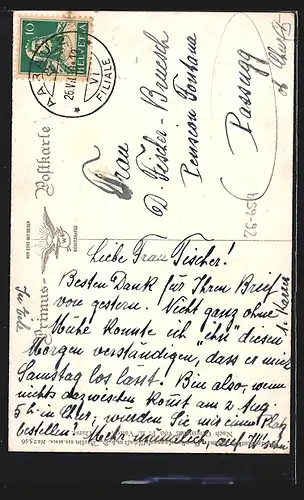 10
HELVETIA
AARAU
VI
FILIALE
Postkarte
Primus-
Frau
D. Fischer-Bruesch
Pension Fontana
Passugg
ob Chur
Liebe Frau Fischer!
Besten Dank für Ihren Brief
von gestern. Nicht ganz ohne
Mühe konnte ich "ihn" diesen
Morgen verständigen, dass er mich
Samstag los lasst. Bin also, wenn
nichts dazwischen kommt am 2 Aug
5 h in Chur, würden Sie mir einen Platz
bestellen? Mehr mündlich, auf W'sehn